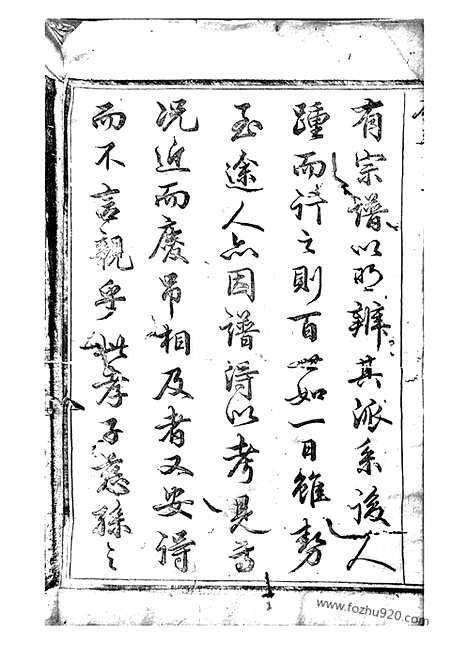 有宗譜以明辨其派系後人
踵而行之則百世如一日雖勢
至途人亦因譜得以考見焉
况近而慶吊相及者又安得
而不言親乎此孝子慈孫之
www.fozhu920.com